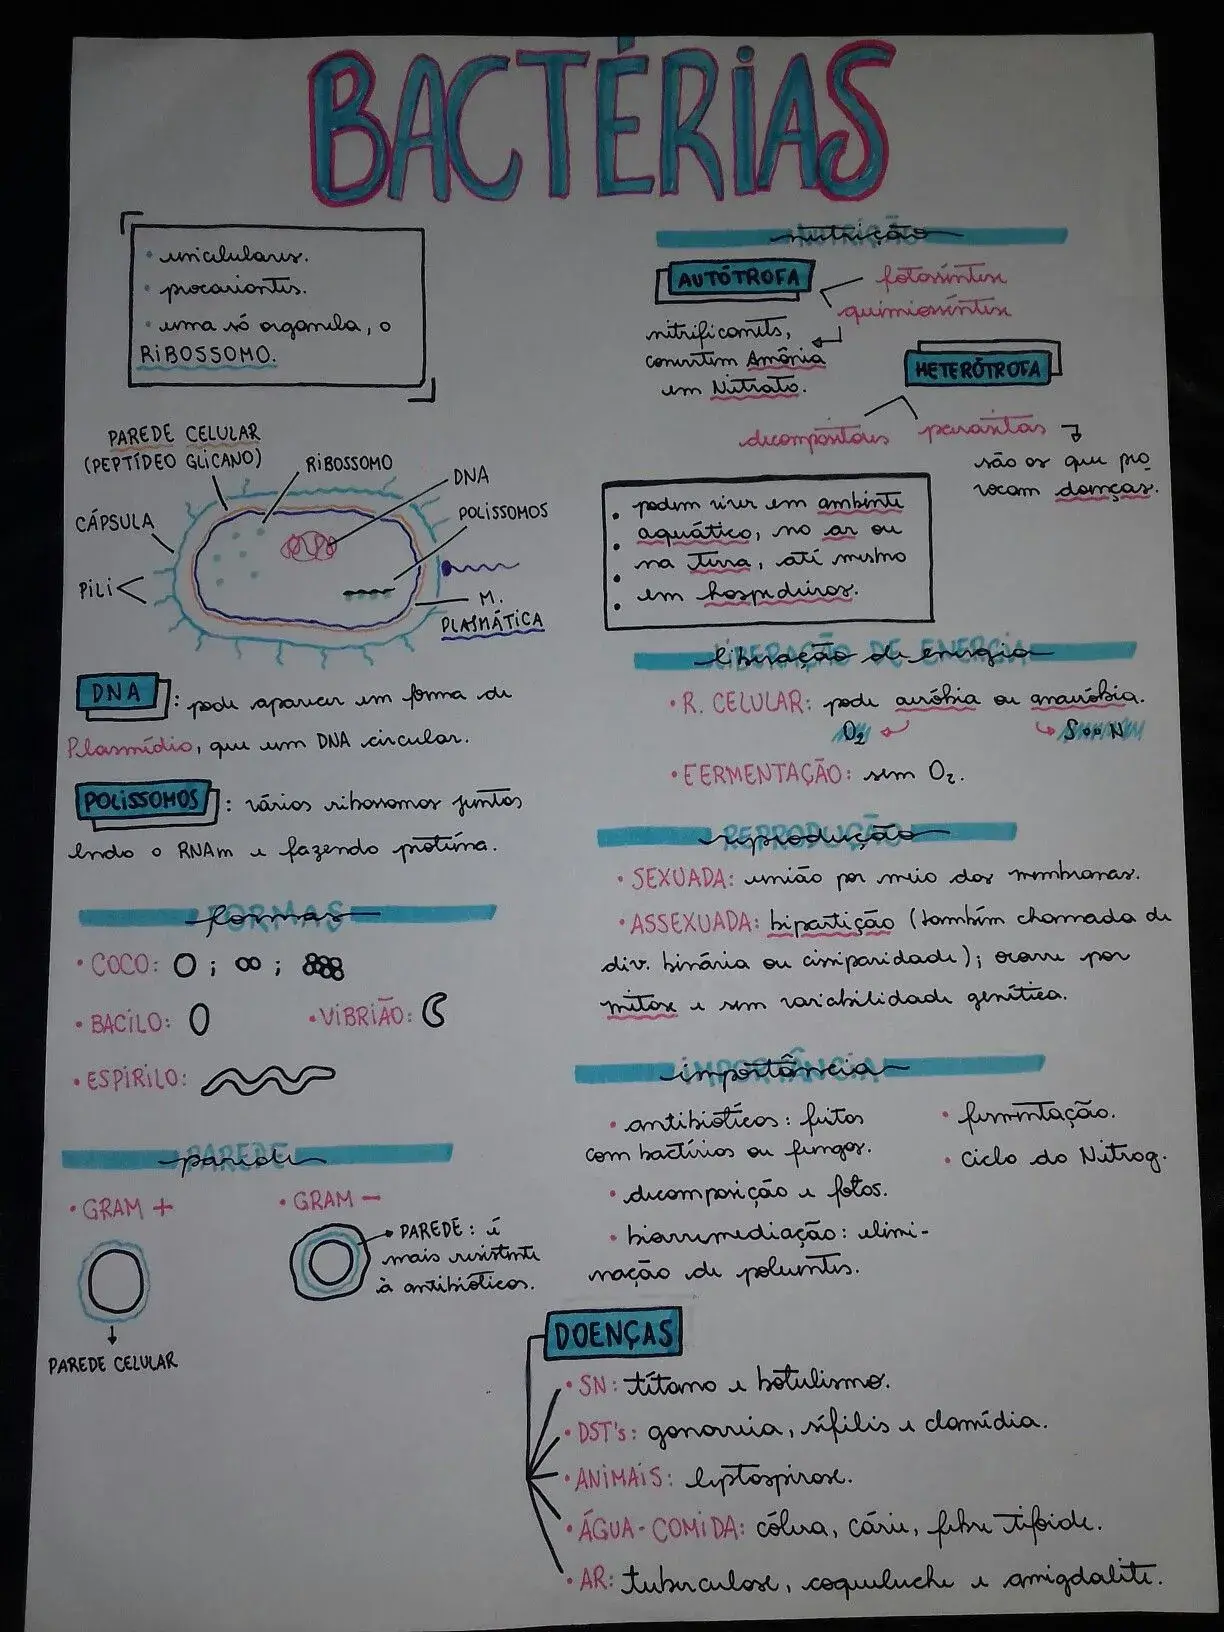 BACTÉRIAS
• unicelulares.
• procariontes.
• uma só organela, o
RIBOSSOMO.
PAREDE CELULAR
(PEPTÍDEO GLICANO)
RIBOSSOMO
DNA
POLISSOMOS
CÁPSULA
PILI
M.
PLASMÁTICA
DNA : pode aparecer em forma de
Plasmídio, que um DNA circular.
POLISSOMOS : vários ribossomos juntos
lendo o RNAm e fazendo proteína.
FORMAS
formas
• COCO: ; ;
• BACILO:
• VIBRIÃO:
• ESPIRILO:
PAREDE
parede
• GRAM +
• GRAM -
PAREDE CELULAR
PAREDE: é
mais resistente
à antibióticos.
nutrição
AUTÓTROFA
fotossíntese
quimiossíntese
nitrificants,
convertem Amônia
em Nitrato.
HETERÓTROFA
decompositores
parasitas
são os que pro
vocam doenças.
• podem viver em ambiente
• aquático, no ar ou
• na terra, até mesmo
• em hospedeiros.
LIBERAÇÃO DE ENERGIA
liberação de energia
• R. CELULAR: pode aeróbia ou anaeróbia.
O₂
S ou N
• FERMENTAÇÃO: sem O₂.
REPRODUÇÃO
reprodução
• SEXUADA: união por meio das membranas.
• ASSEXUADA: bipartição (também chamada de
div. binária ou cissiparidade); ocorre por
mitose e sem variabilidade genética.
IMPORTÂNCIA
importância
• antibióticos: feitos
com bactérias ou fungos.
• decomposição e fotos.
• biorremediação: elimi-
nação de poluentes.
• fermentação.
• ciclo do Nitrog.
DOENÇAS
• SN: tétano e botulismo.
• DST's: gonorreia, sífilis e clamídia.
• ANIMAIS: leptospirose.
• ÁGUA-COMIDA: cólera, cárie, febre tifoide.
• AR: tuberculose, coqueluche e amigdalite.